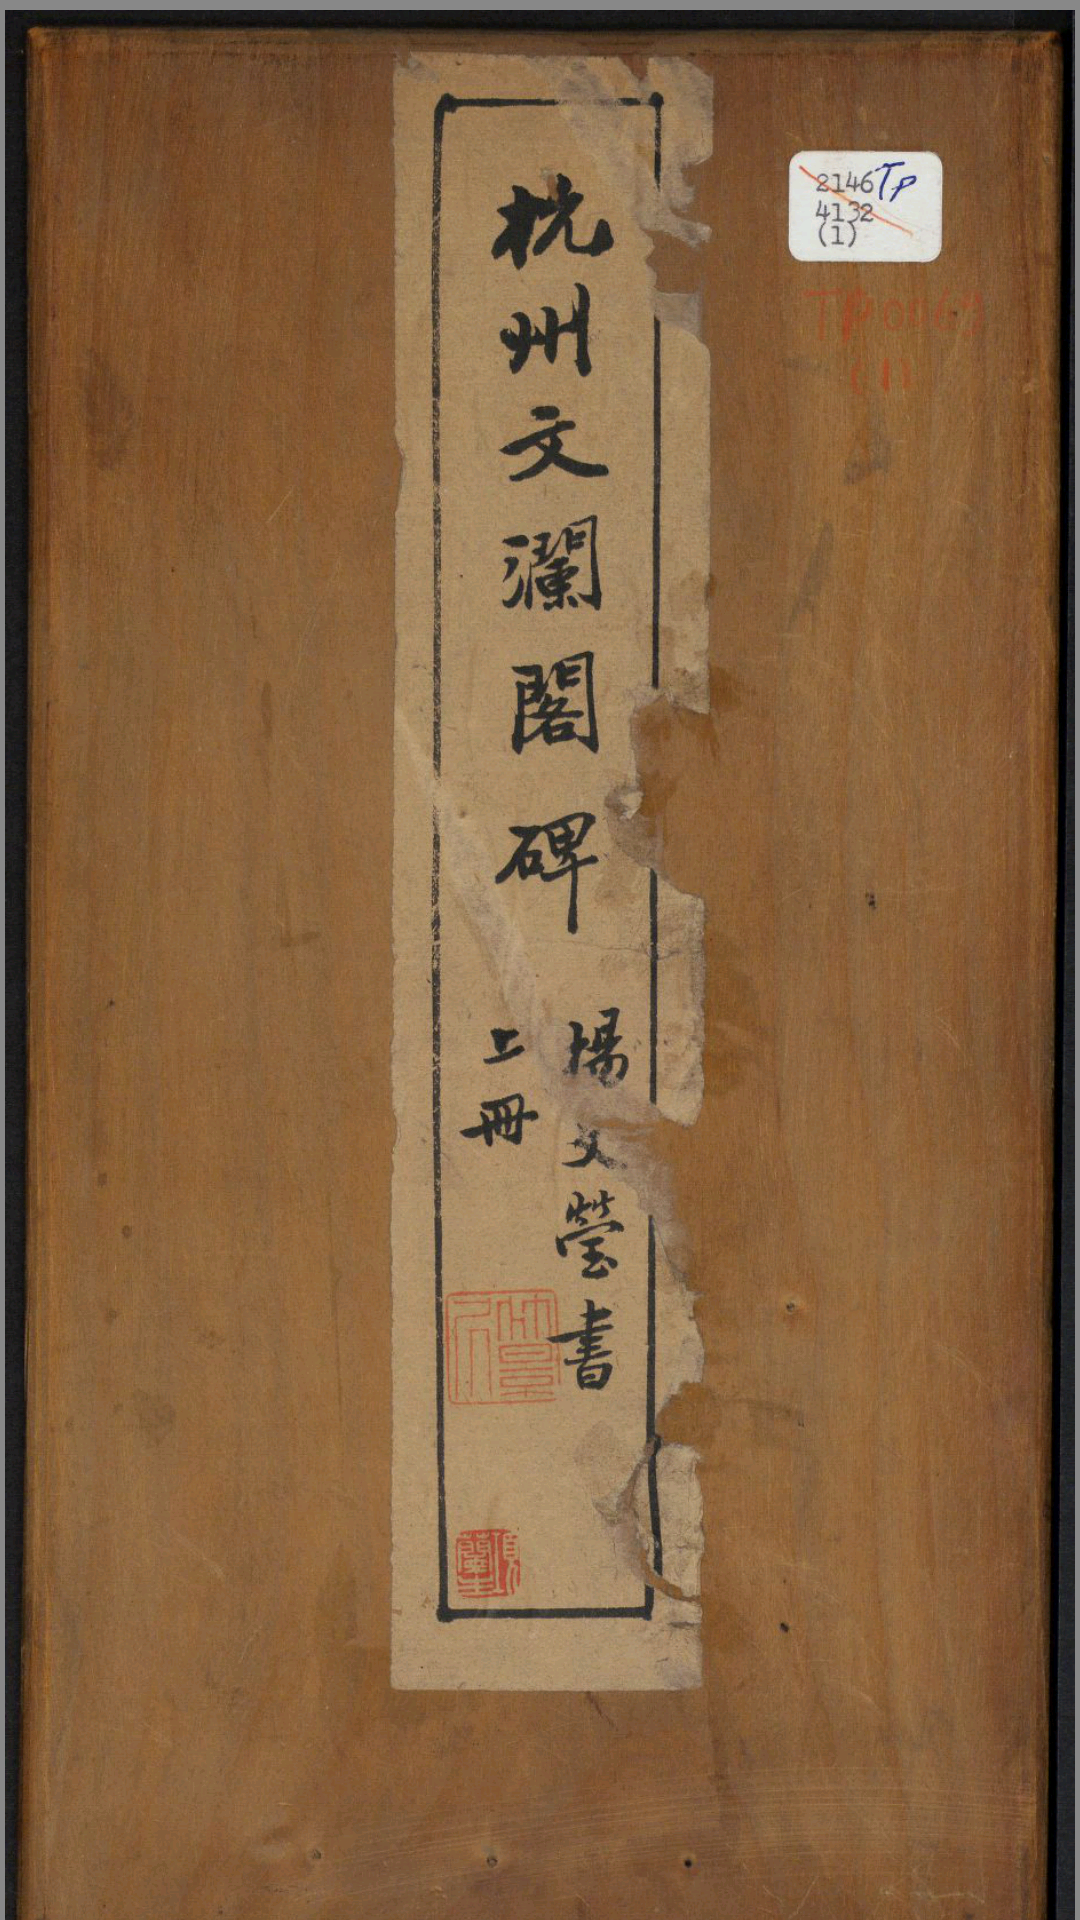 杭州文瀾閣碑
楊文瑩書
上冊
2146 TP
4132
(1)
TP 0069
(1)